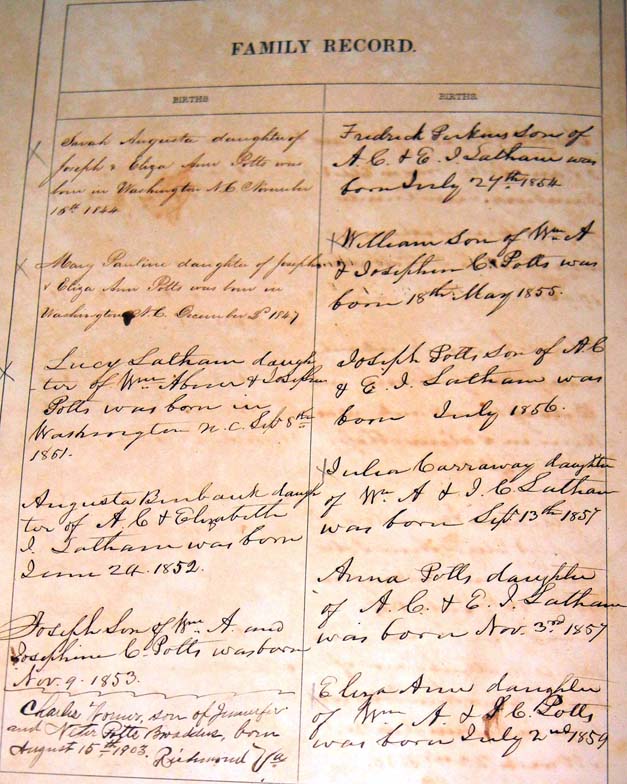 FAMILY RECORD.
BIRTHS
Sarah Augusta daughter of
Joseph & Eliza Ann Potts was
born in Washington N.C November
15th 1844
Mary Pauline daughter of Joseph
& Eliza Ann Potts was born in
Washington N.C. December 1847
Lucy Latham daugh
-ter of Wm Abner & Josephine
Potts was born in
Washington N.C. Sept 8th
1851.
Augusta Burbank daugh
ter of A C & Elizabeth
I. Latham was born
June 24. 1852.
Joseph Son of Wm A. and
Josephine C. Potts was born
Nov. 9. 1853.
Charlie son of
and Potts Broaddus, born
August 15th 1903. Richmond Va
BIRTHS.
Fredrick Perkins Son of
A. C. & E. I. Latham was
born July 27th 1854
William Son of Wm A
& Josephine C. Potts was
born 18th May 1855.
Joseph Potts Son of A C
& E. I. Latham was
born July 1856.
Julia Carraway daughter
of Wm A & J. C. Latham
was born Sept. 13th 1857
Anna Potts daughter
of A. C. & E. I. Latham
was born Nov. 3rd 1857
Eliza Ann daughter
of Wm A. & J. C. Potts
was born July 2nd 1859